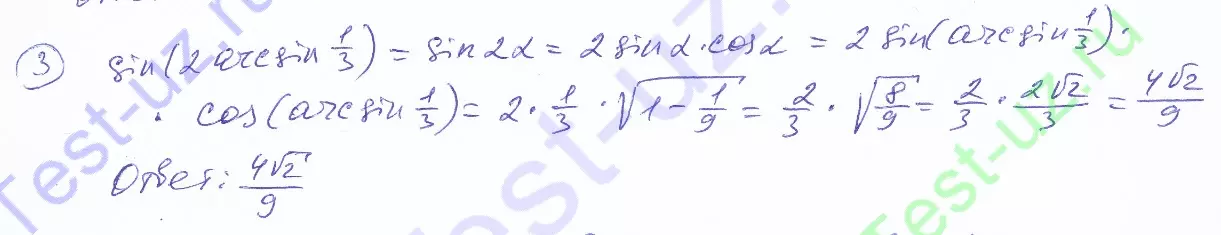 ③ sin(2 arcsin 1/3) = sin 2α = 2 sin α · cos α = 2 sin(arcsin 1/3) ·
· cos(arcsin 1/3) = 2 · 1/3 · √(1 - 1/9) = 2/3 · √(8/9) = 2/3 · 2√2/3 = 4√2/9
Ответ: 4√2/9
Test-uz.ru
Test-uz.ru